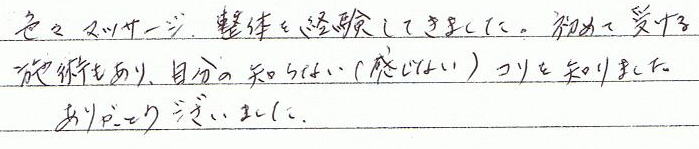 色々マッサージ、整体を経験してきました。初めて受ける
施術もあり、自分の知らない(感じない)コリを知りました。
ありがとうございました。